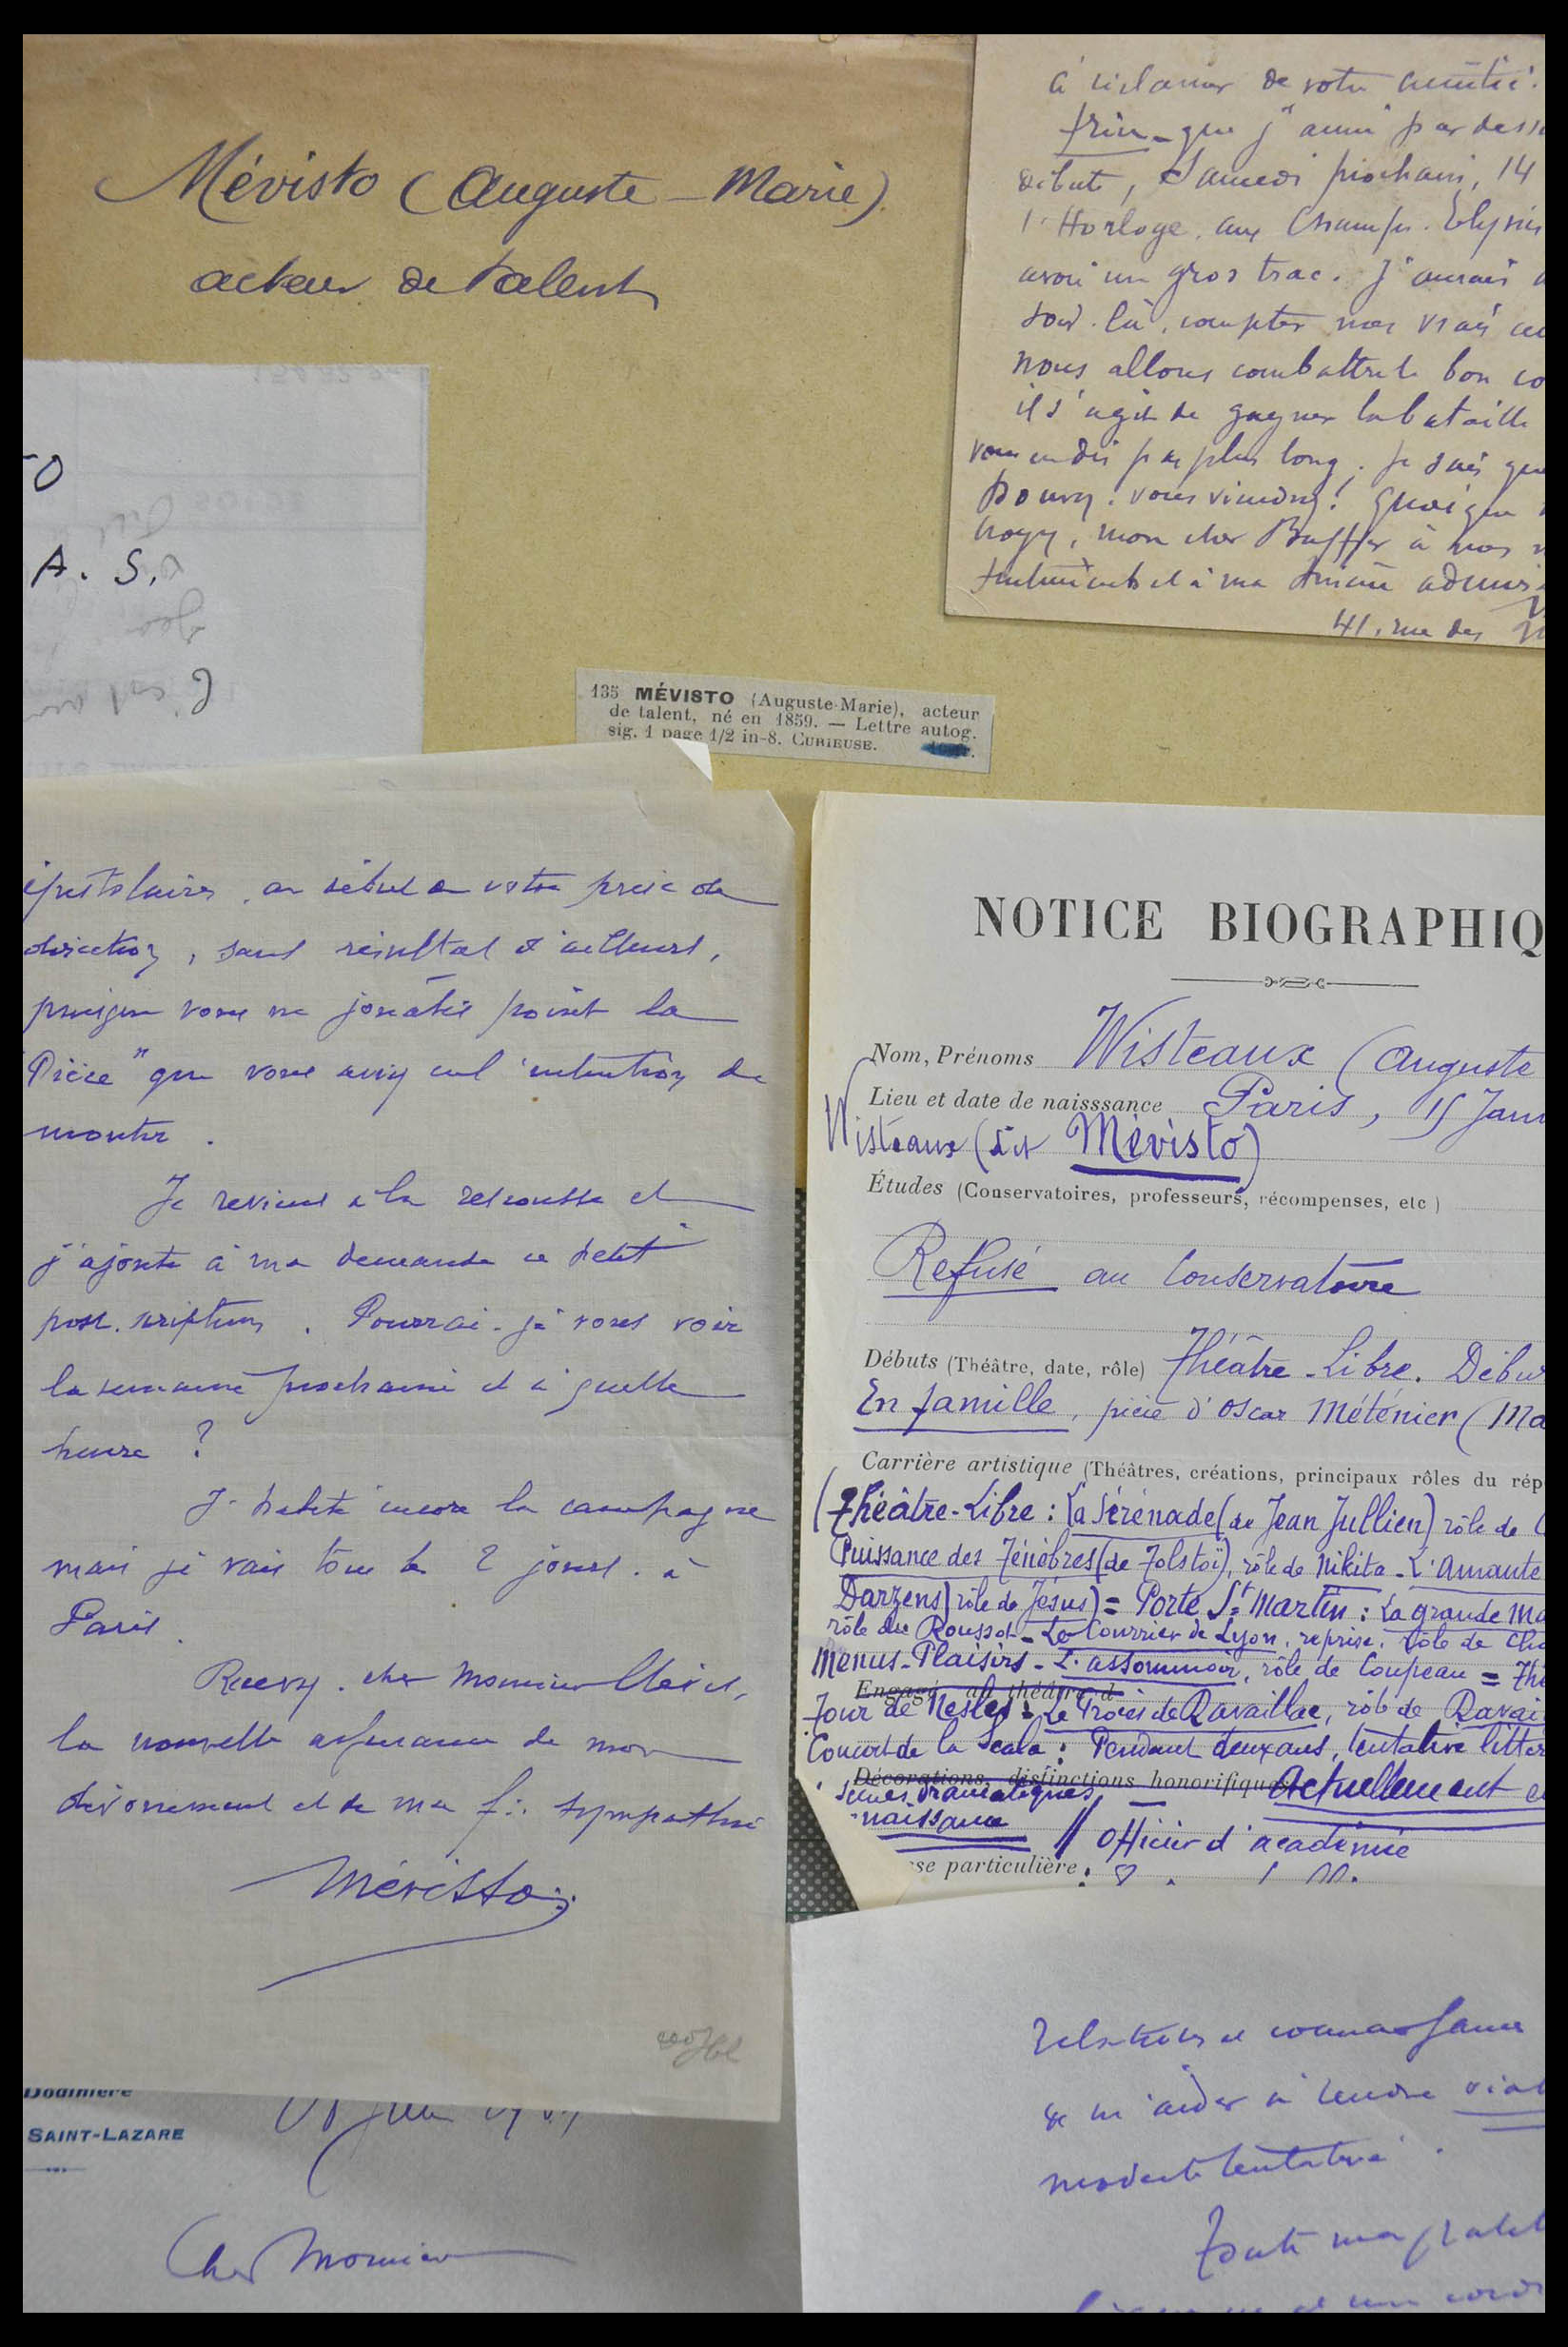 Mévisto (Auguste-Marie)
acteur de talent
à réclamer de votre amitié.
que j'aime par dess
débute, Samedi prochain, 14
l'Horloge aux Champs-Elysées
avoir un gros trac. J'aurais
compter mes vrais
nous allons combattre le bon co
il s'agit de gagner la bataille
vous en dis pas plus long. Je sais que
vous viendrez! Quoique
Croyez, mon cher Buffet à mes
sentiments et à ma sincère admir
41, rue des
O
A. S.
135 MÉVISTO (Auguste-Marie), acteur
de talent, né en 1859. — Lettre autog.
sig. 1 page 1/2 in-8. CURIEUSE.
épistolaires, au début de votre prise de
direction, sans résultat d'ailleurs,
puisque vous ne jouâtes point la
"Pièce" que vous aviez eu l'intention de
monter.
Je reviens à la rescousse et
j'ajoute à ma demande ce petit
post-scriptum. Pourrai-je vous voir
la semaine prochaine et à quelle
heure ?
J'habite encore la campagne
mais je vais tous les 2 jours à
Paris.
Recevez, cher Monsieur
la nouvelle assurance de mon
dévouement et de ma f∴ sympathie
Mévisto∴
NOTICE BIOGRAPHIQ
Nom, Prénoms Wisteaux (Auguste
Lieu et date de naisssance Paris, 15 Janv
Wisteaux (dit Mévisto)
Études (Conservatoires, professeurs, récompenses, etc)
Refusé au Conservatoire
Débuts (Théâtre, date, rôle) Théâtre-Libre. Début
En famille, pièce d'Oscar Méténier (Ma
Carrière artistique (Théâtres, créations, principaux rôles du rép
(Théâtre-Libre : La Sérénade (de Jean Jullien) rôle de
Puissance des Ténèbres (de Tolstoï), rôle de Nikita - L'Amante
Darzens) rôle de Jésus) = Porte St Martin : La grande Ma
rôle du Rousset - Le Courrier de Lyon, reprise, rôle de Cho
Menus-Plaisirs - L'assommoir, rôle de Coupeau = Thé
Engagé au théâtre d
Tour de Nesles : Le Procès de Ravaillac, rôle de Ravai
Concert de la Scala : Pendant deux ans, tentative littér
Décorations, distinctions honorifiques Actuellement
scènes dramatiques
naissance // Officier d'académie
se particulière :
Relations et connaissances
de m'aider à rendre viab
modeste tentative.
Toute ma gratit
SAINT-LAZARE
Cher Monsieur